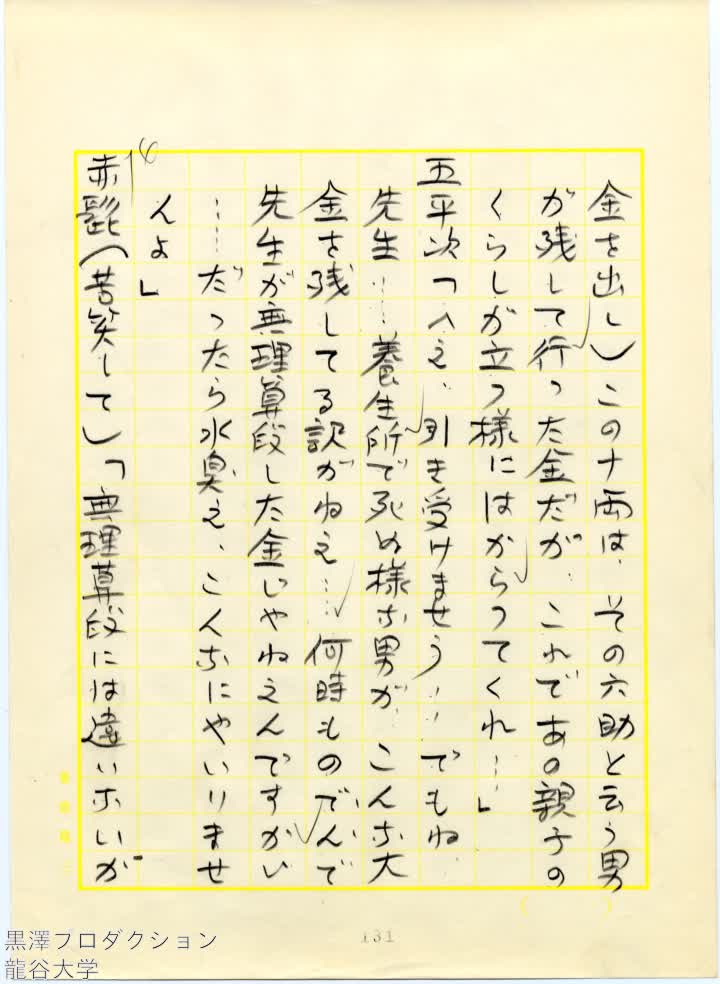 金を出し)この十両は、その六助と云う男
が残して行った金だが、これであの親子の
くらしが立つ様にはからってくれ…」
五平次「へえ、引き受けませう…でもね、
先生…養生所で死ぬ様な男が、こんな大
金を残してる訳がねえ…何時ものでんで
先生が無理算段した金じゃねえんですかい
……だったら水臭え、こんなにやいりませ
んよ」
赤髭(苦笑して)「無理算段には違いないが
14
131
黒澤プロダクション
龍谷大学